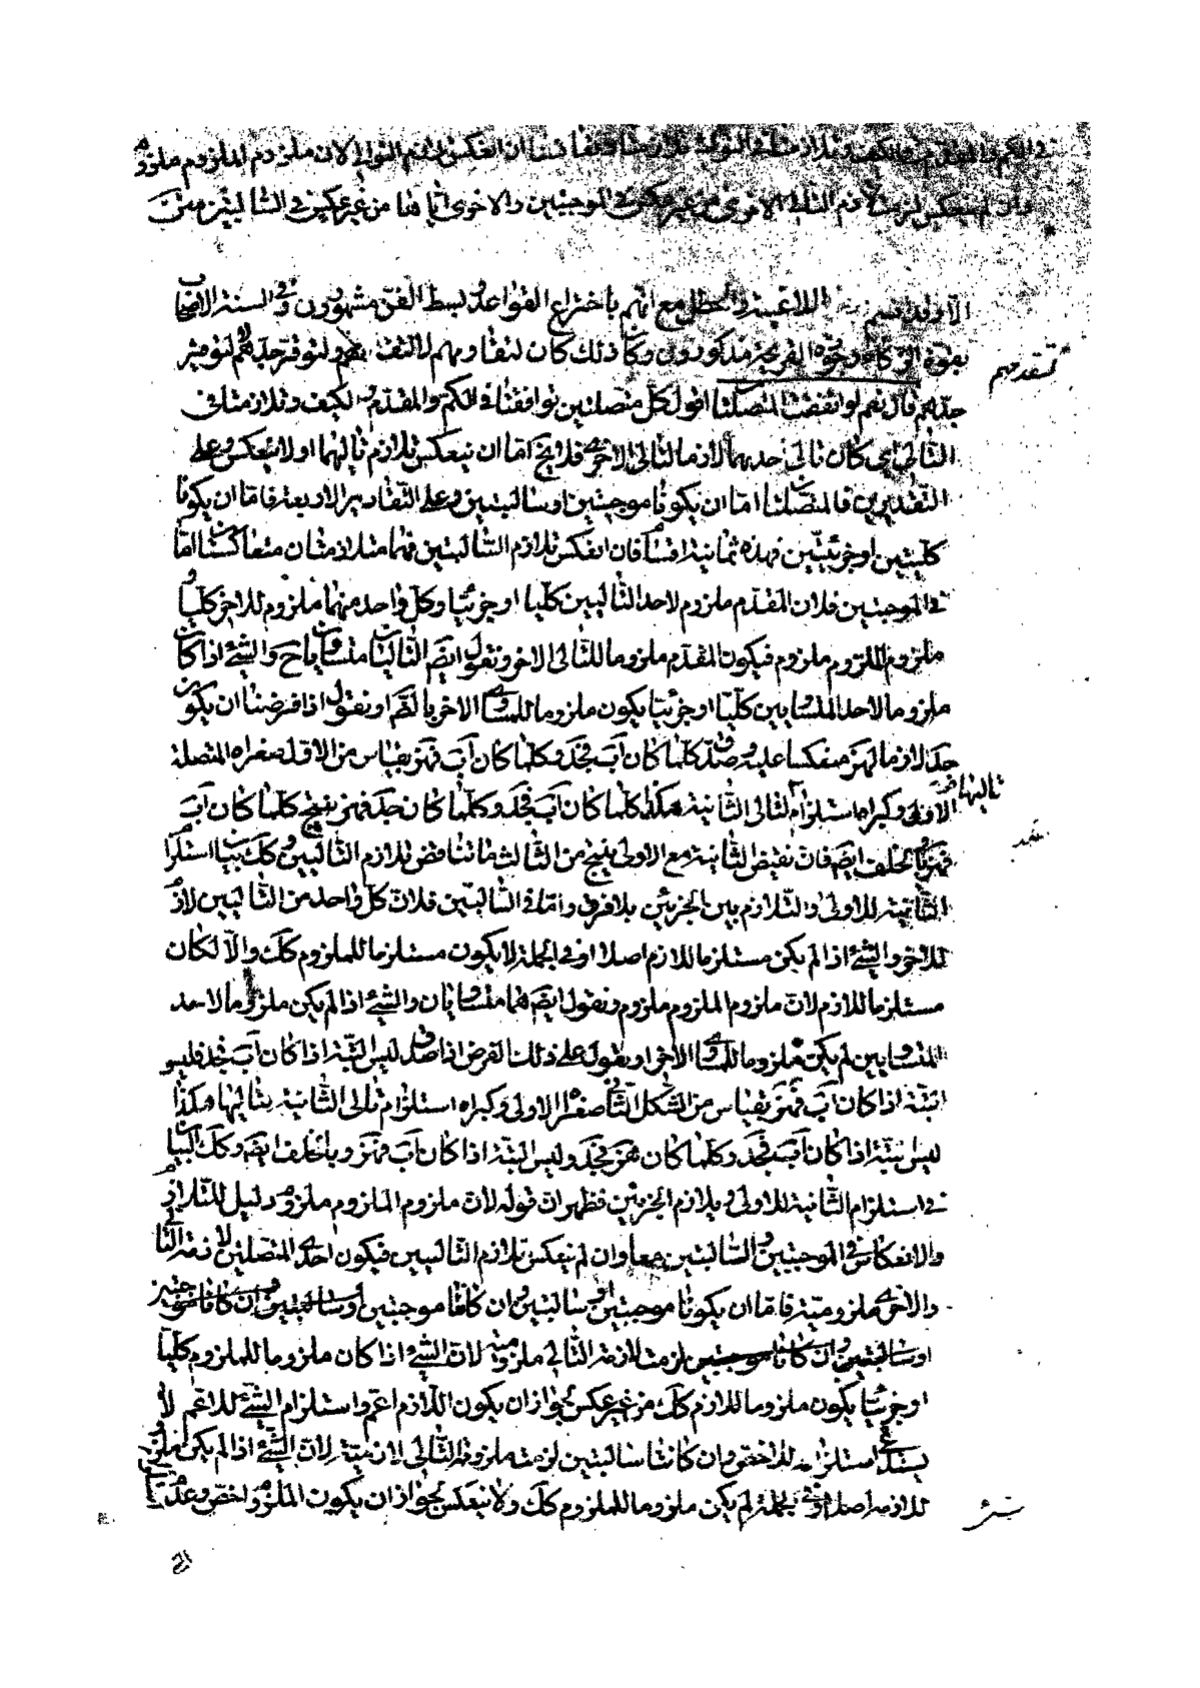 في الكم والمقدم والكيف وتلازمتا في التوالي تلازمتا وتعاكستا ان انعكس تلازم التوالي لان ملزوم الملزوم ملزوم
وان لم ينعكس لزم لازم التالي الاخرى من غير عكس في الموجبتين والاخرى اياها من غير عكس في السالبتين
مع انهم باختراع القواعد وبسط الفن مشهورون وفي السنة الاصحاب
بقوة الذكاء وجودة القريحة مذكورون وكان ذلك كان لتقادمهم
متقدمهم
قال نعم لو اتفقت المتصلتان اقول كل متصلتين توافقتا في الكم والمقدم والكيف وتلازمتا في
التالي اي كان تالي احديهما لازما لتالي الاخرى فلا يخ اما ان ينعكس تلازم تاليهما او لا ينعكس وعلى
التقديرين فالمتصلتان اما ان يكونا موجبتين او سالبتين وعلى التقادير الاربعة فاما ان يكونا
كليتين او جزئيتين فهذه ثمانية اقسام فان انعكس تلازم التاليتين فهما متلازمتان متعاكستان اما
في الموجبتين فلان المقدم ملزوم لاحد التاليين كليا او جزئيا وكل واحد منهما ملزوم للاخر كليا
ملزوم الملزوم ملزوم فيكون المقدم ملزوما للتالي الاخر ونقول ايضا التاليان متساويان ح والشيء اذا كان
ملزوما لاحد المتساويين كليا او جزئيا يكون ملزوما للمساوي الاخر بالضم او نقول اذا فرضنا ان يكون
جد لازما لهز منعكسا عليه وصدق كلما كان اب فجد وكلما كان اب فهز بقياس من الاول صغراه المتصلة
تاليها
الاولى وكبراه استلزام لتالي الثانية هكذا كلما كان اب فجد وكلما كان جد فهز ينتج كلما كان اب
فهز وبالخلف ايضا فان نقيض الثانية مع الاولى ينتج من الثالث ما يناقض تلازم التاليين وكذلك بيان استلزام
الثانية للاولى والتلازم بين الجزئيتين بلا فرق واما في السالبتين فلان كل واحد من التاليين لازم
للاخر والشيء اذا لم يكن مستلزما للازم اصلا او في الجملة لا يكون مستلزما للملزوم كذلك والا لكان
مستلزما للازم لان ملزوم الملزوم ملزوم ونقول ايضا هما متساويان والشيء اذا لم يكن ملزوما لاحد
المتساويين لم يكن ملزوما للمساوي الاخر او نقول على ذلك الفرض اذا صدق ليس البتة اذا كان اب فجد فليس
البتة اذا كان اب فهز بقياس من الشكل الثاني صغراه الاولى وكبراه استلزام تالي الثانية لتاليها هكذا
ليس البتة اذا كان اب فجد وكلما كان هز فجد وليس البتة اذا كان اب فهز وبالخلف ايضا وكذلك البيان
في استلزام الثانية للاولى وتلازم الجزئيتين فظهر ان قوله لان ملزوم الملزوم ملزوم دليل للتلازم
والانعكاس في الموجبتين والسالبتين جميعا وان لم ينعكس تلازم التاليين فيكون احدى المتصلتين لازمة التالي
والاخرى ملزومية فاما ان يكونا موجبتين او سالبتين وان كانتا موجبتين
لزمت لازمة التالي ملزومته لان الشيء اذا كان ملزوما للملزوم كليا
او جزئيا يكون ملزوما للازم كذلك من غير عكس لجواز ان يكون اللازم اعم واستلزام الشيء للاعم لا
يستدعي استلزامه للاخص وان كانتا سالبتين لزمت ملزومة التالي لازمته لان الشيء اذا لم يكن ملزوما
للازمه اصلا او في الجملة لم يكن ملزوما للملزوم كذلك ولا ينعكس لجواز ان يكون الملزوم اخص وعدم